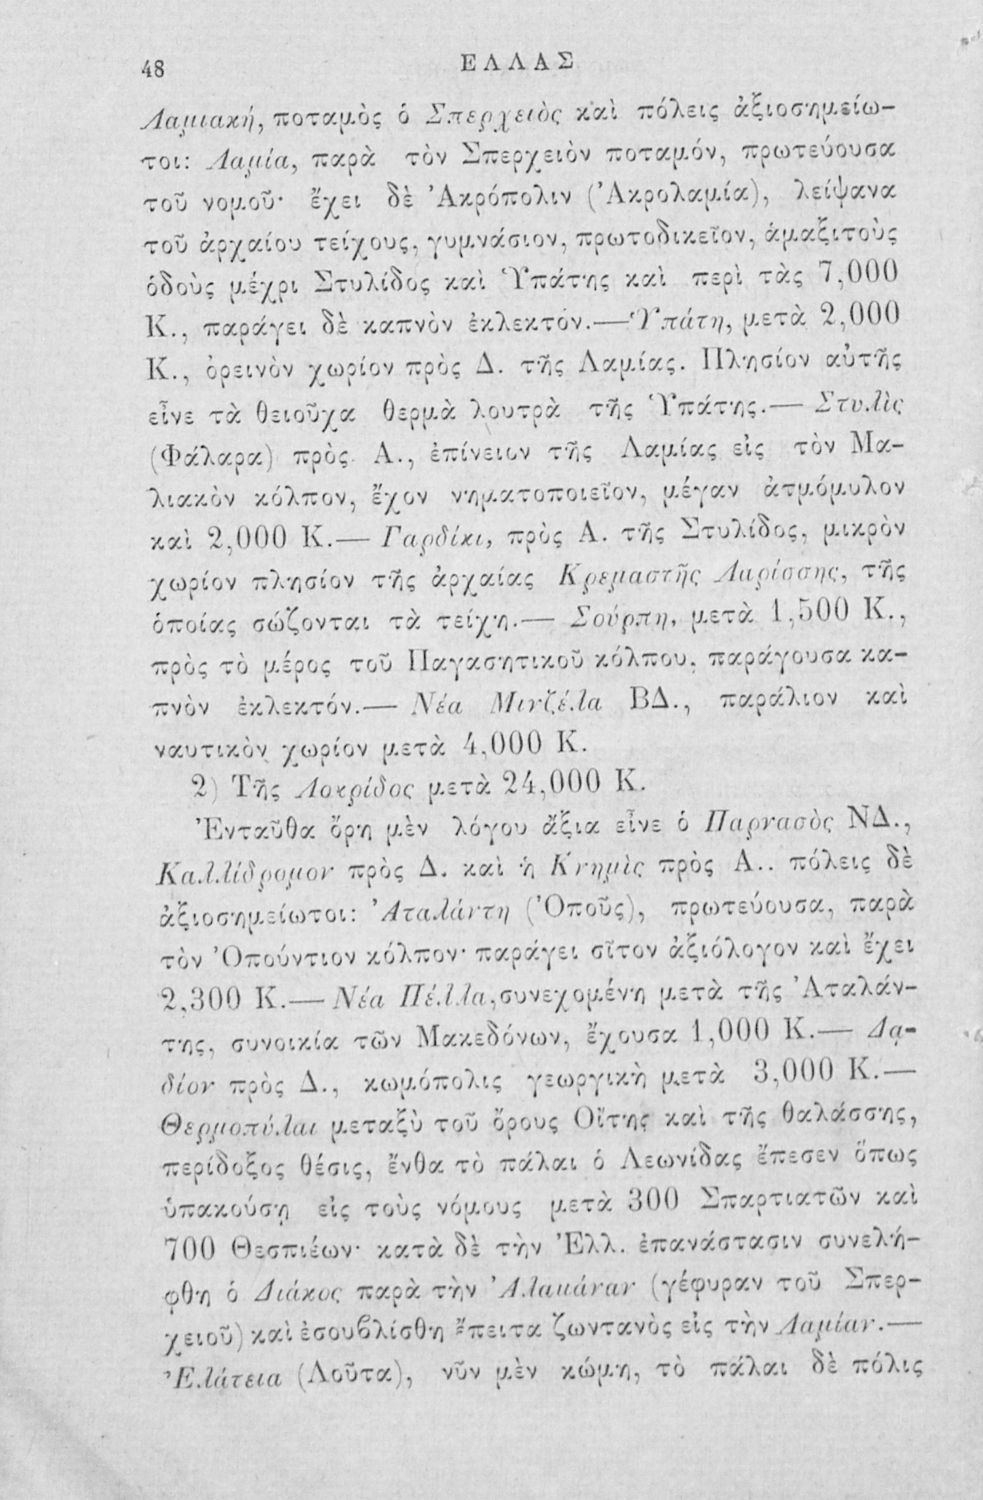 48
ΕΛΛΑΣ
Λαμιακή, ποταμὸς ὁ Σπερχειὸς καὶ πόλεις ἀξιοσημείω-
τοι: Λαμία, παρὰ τὸν Σπερχειὸν ποταμόν, πρωτεύουσα
τοῦ νομοῦ· ἔχει δὲ Ἀκρόπολιν (Ἀκρολαμία), λείψανα
τοῦ ἀρχαίου τείχους, γυμνάσιον, πρωτοδικεῖον, ἁμαξιτοὺς
ὁδοὺς μέχρι Στυλίδος καὶ Ὑπάτης καὶ περὶ τὰς 7,000
Κ., παράγει δὲ καπνὸν ἐκλεκτόν.—Ὑπάτη, μετὰ 2,000
Κ., ὀρεινὸν χωρίον πρὸς Δ. τῆς Λαμίας. Πλησίον αὐτῆς
εἶνε τὰ θειοῦχα θερμὰ λουτρὰ τῆς Ὑπάτης.— Στυλὶς
(Φάλαρα) πρὸς Α., ἐπίνειον τῆς Λαμίας εἰς τὸν Μα-
λιακὸν κόλπον, ἔχον νηματοποιεῖον, μέγαν ἀτμόμυλον
καὶ 2,000 Κ.— Γαρδίκι, πρὸς Α. τῆς Στυλίδος, μικρὸν
χωρίον πλησίον τῆς ἀρχαίας Κρεμαστῆς Λαρίσσης, τῆς
ὁποίας σώζονται τὰ τείχη.— Σούρπη, μετὰ 1,500 Κ.,
πρὸς τὸ μέρος τοῦ Παγασητικοῦ κόλπου, παράγουσα κα-
πνὸν ἐκλεκτόν.— Νέα Μιντζέλα ΒΔ., παράλιον καὶ
ναυτικὸν χωρίον μετὰ 4,000 Κ.
2) Τῆς Λοκρίδος μετὰ 24,000 Κ.
Ἐνταῦθα ὄρη μὲν λόγου ἄξια εἶνε ὁ Παρνασὸς ΝΔ.,
Καλλίδρομον πρὸς Δ. καὶ ἡ Κνημὶς πρὸς Α.. πόλεις δὲ
ἀξιοσημείωτοι: Ἀταλάντη (Ὀποῦς), πρωτεύουσα, παρὰ
τὸν Ὀπούντιον κόλπον· παράγει σῖτον ἀξιόλογον καὶ ἔχει
2,300 Κ.— Νέα Πέλλα, συνεχομένη μετὰ τῆς Ἀταλάν-
της, συνοικία τῶν Μακεδόνων, ἔχουσα 1,000 Κ.— Δα-
δίον πρὸς Δ., κωμόπολις γεωργικὴ μετὰ 3,000 Κ.—
Θερμοπύλαι μεταξὺ τοῦ ὄρους Οἴτης καὶ τῆς θαλάσσης,
περίδοξος θέσις, ἔνθα τὸ πάλαι ὁ Λεωνίδας ἔπεσεν ὅπως
ὑπακούσῃ εἰς τοὺς νόμους μετὰ 300 Σπαρτιατῶν καὶ
700 Θεσπιέων· κατὰ δὲ τὴν Ἑλλ. ἐπανάστασιν συνελή-
φθη ὁ Διάκος παρὰ τὴν Ἀλαμάναν (γέφυραν τοῦ Σπερ-
χειοῦ) καὶ ἐσουβλίσθη ἔπειτα ζωντανὸς εἰς τὴν Λαμίαν.—
Ἐλάτεια (Λοῦτα), νῦν μὲν κώμη, τὸ πάλαι δὲ πόλις